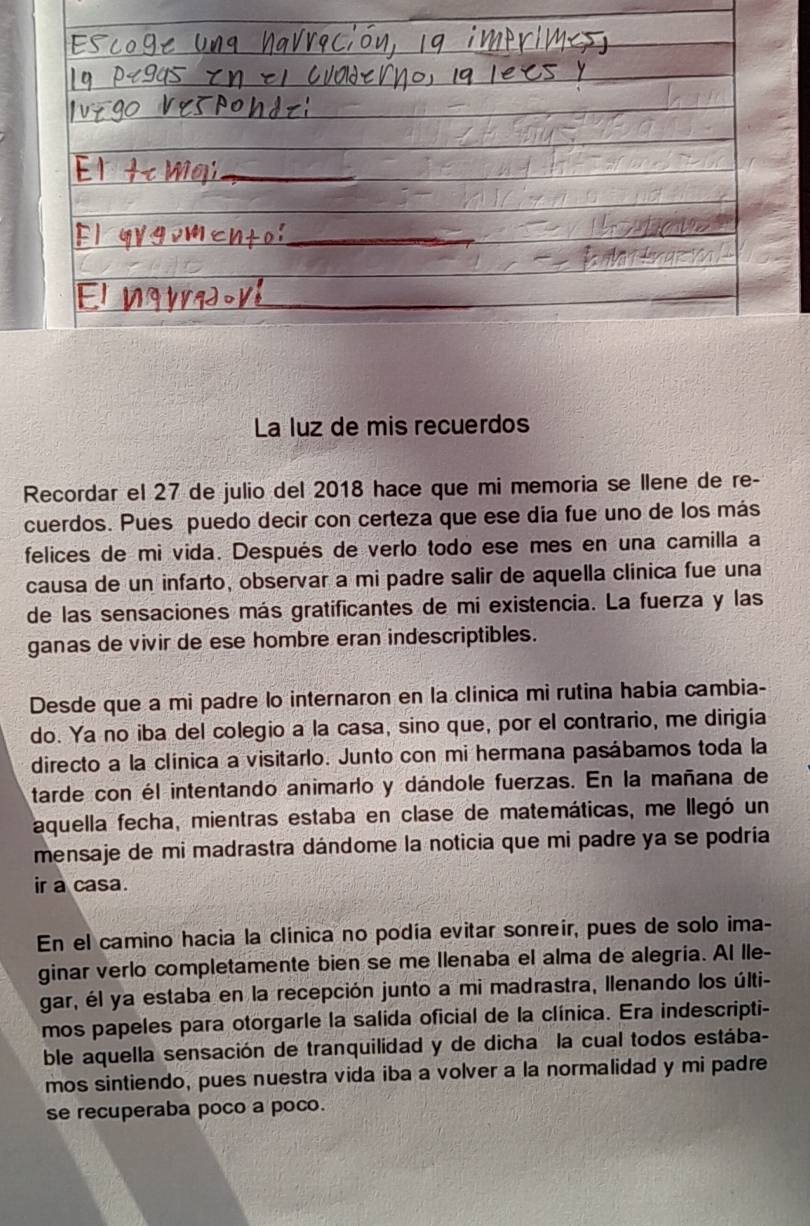 Escoge una narración, la imprimes,
la pegas en el cuaderno, la lees y
luego responde:
El tema:
El argumento:
El narrador:
La luz de mis recuerdos
Recordar el 27 de julio del 2018 hace que mi memoria se llene de re-
cuerdos. Pues puedo decir con certeza que ese día fue uno de los más
felices de mi vida. Después de verlo todo ese mes en una camilla a
causa de un infarto, observar a mi padre salir de aquella clínica fue una
de las sensaciones más gratificantes de mi existencia. La fuerza y las
ganas de vivir de ese hombre eran indescriptibles.
Desde que a mi padre lo internaron en la clínica mi rutina había cambia-
do. Ya no iba del colegio a la casa, sino que, por el contrario, me dirigía
directo a la clínica a visitarlo. Junto con mi hermana pasábamos toda la
tarde con él intentando animarlo y dándole fuerzas. En la mañana de
aquella fecha, mientras estaba en clase de matemáticas, me llegó un
mensaje de mi madrastra dándome la noticia que mi padre ya se podría
ir a casa.
En el camino hacia la clínica no podía evitar sonreír, pues de solo ima-
ginar verlo completamente bien se me llenaba el alma de alegría. Al lle-
gar, él ya estaba en la recepción junto a mi madrastra, llenando los últi-
mos papeles para otorgarle la salida oficial de la clínica. Era indescripti-
ble aquella sensación de tranquilidad y de dicha la cual todos estába-
mos sintiendo, pues nuestra vida iba a volver a la normalidad y mi padre
se recuperaba poco a poco.